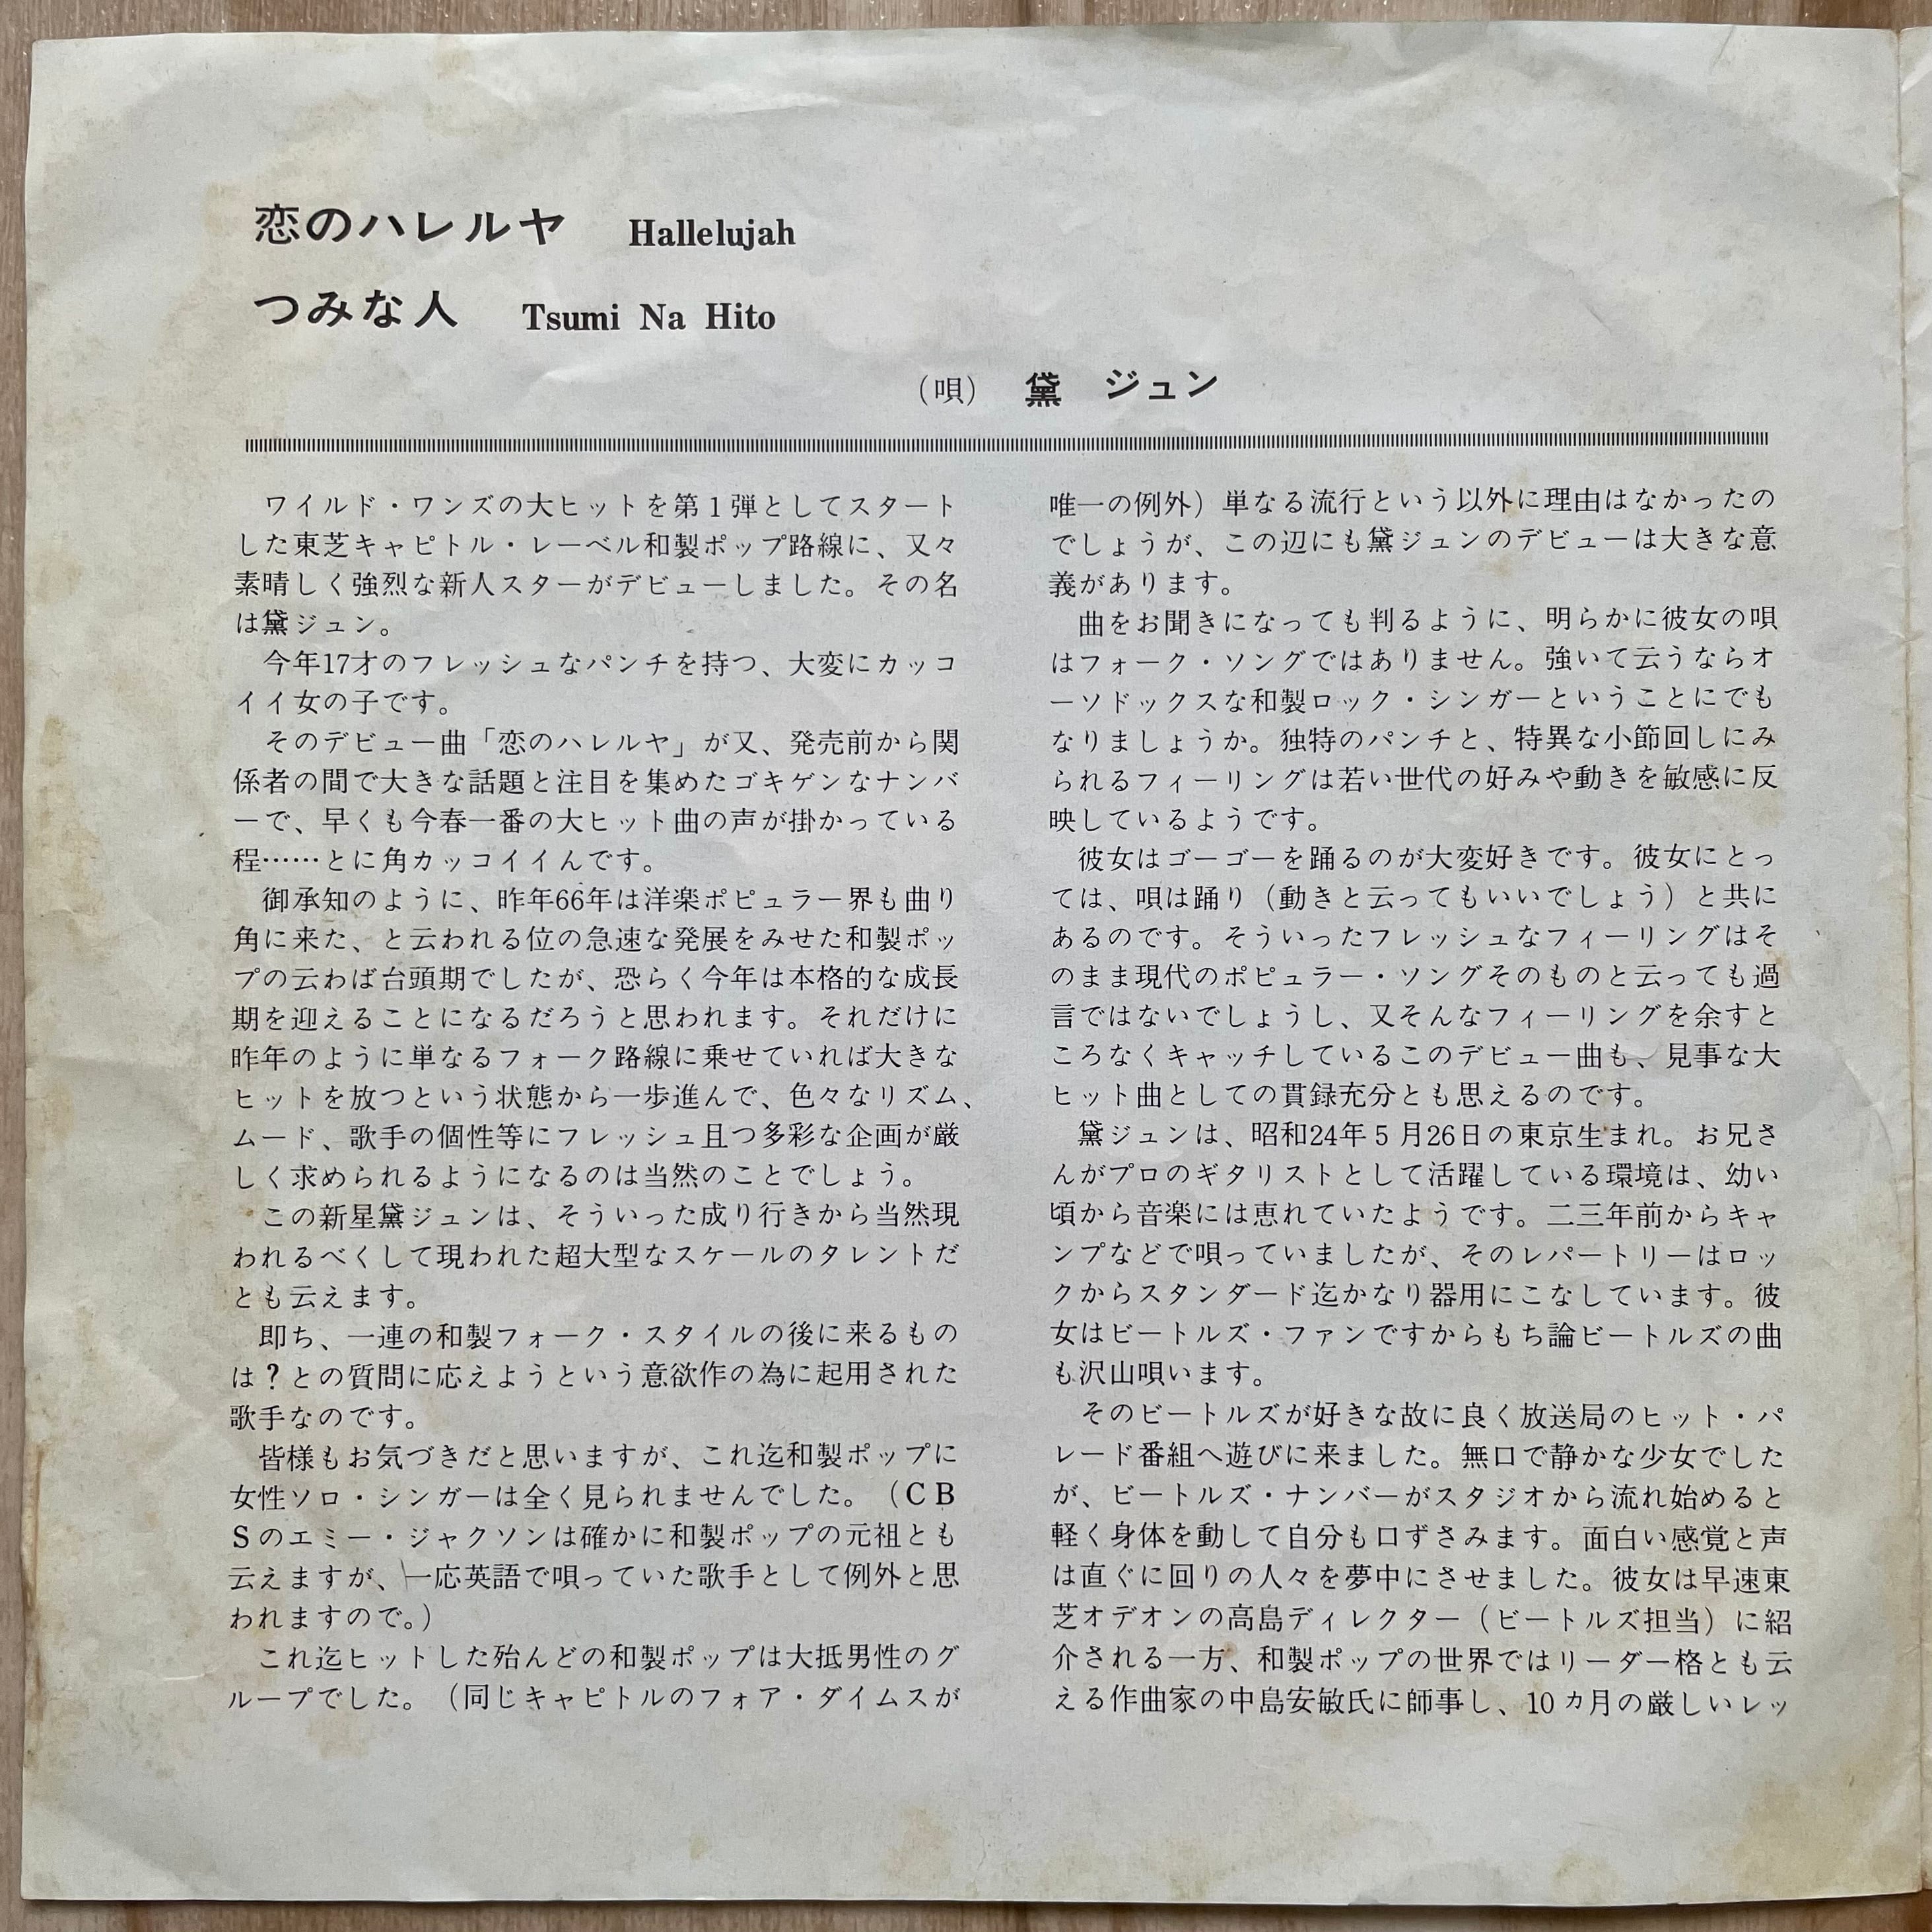 恋のハレルヤ Hallelujah
つみな人 Tsumi Na Hito
(唄) 黛 ジュン
ワイルド・ワンズの大ヒットを第1弾としてスタート
した東芝キャピトル・レーベル和製ポップ路線に、又々
素晴しく強烈な新人スターがデビューしました。その名
は黛ジュン。
今年17才のフレッシュなパンチを持つ、大変にカッコ
イイ女の子です。
そのデビュー曲「恋のハレルヤ」が又、発売前から関
係者の間で大きな話題と注目を集めたゴキゲンなナンバ
ーで、早くも今春一番の大ヒット曲の声が掛かっている
程……とに角カッコイイんです。
御承知のように、昨年66年は洋楽ポピュラー界も曲り
角に来た、と云われる位の急速な発展をみせた和製ポッ
プの云わば台頭期でしたが、恐らく今年は本格的な成長
期を迎えることになるだろうと思われます。それだけに
昨年のように単なるフォーク路線に乗せていれば大きな
ヒットを放つという状態から一歩進んで、色々なリズム、
ムード、歌手の個性等にフレッシュ且つ多彩な企画が厳
しく求められるようになるのは当然のことでしょう。
この新星黛ジュンは、そういった成り行きから当然現
われるべくして現われた超大型なスケールのタレントだ
とも云えます。
即ち、一連の和製フォーク・スタイルの後に来るもの
は?との質問に応えようという意欲作の為に起用された
歌手なのです。
皆様もお気づきだと思いますが、これ迄和製ポップに
女性ソロ・シンガーは全く見られませんでした。(CB
Sのエミー・ジャクソンは確かに和製ポップの元祖とも
云えますが、一応英語で唄っていた歌手として例外と思
われますので。)
これ迄ヒットした殆んどの和製ポップは大抵男性のグ
ループでした。(同じキャピトルのフォア・ダイムスが
唯一の例外)単なる流行という以外に理由はなかったの
でしょうが、この辺にも黛ジュンのデビューは大きな意
義があります。
曲をお聞きになっても判るように、明らかに彼女の唄
はフォーク・ソングではありません。強いて云うならオ
ーソドックスな和製ロック・シンガーということにでも
なりましょうか。独特のパンチと、特異な小節回しにみ
られるフィーリングは若い世代の好みや動きを敏感に反
映しているようです。
彼女はゴーゴーを踊るのが大変好きです。彼女にとっ
ては、唄は踊り(動きと云ってもいいでしょう)と共に
あるのです。そういったフレッシュなフィーリングはそ
のまま現代のポピュラー・ソングそのものと云っても過
言ではないでしょうし、又そんなフィーリングを余すと
ころなくキャッチしているこのデビュー曲も、見事な大
ヒット曲としての貫録充分とも思えるのです。
黛ジュンは、昭和24年5月26日の東京生まれ。お兄さ
んがプロのギタリストとして活躍している環境は、幼い
頃から音楽には恵れていたようです。二三年前からキャ
ンプなどで唄っていましたが、そのレパートリーはロッ
クからスタンダード迄かなり器用にこなしています。彼
女はビートルズ・ファンですからもち論ビートルズの曲
も沢山唄います。
そのビートルズが好きな故に良く放送局のヒット・パ
レード番組へ遊びに来ました。無口で静かな少女でした
が、ビートルズ・ナンバーがスタジオから流れ始めると
軽く身体を動して自分も口ずさみます。面白い感覚と声
は直ぐに回りの人々を夢中にさせました。彼女は早速東
芝オデオンの高島ディレクター(ビートルズ担当)に紹
介される一方、和製ポップの世界ではリーダー格とも云
える作曲家の中島安敏氏に師事し、10カ月の厳しいレッ